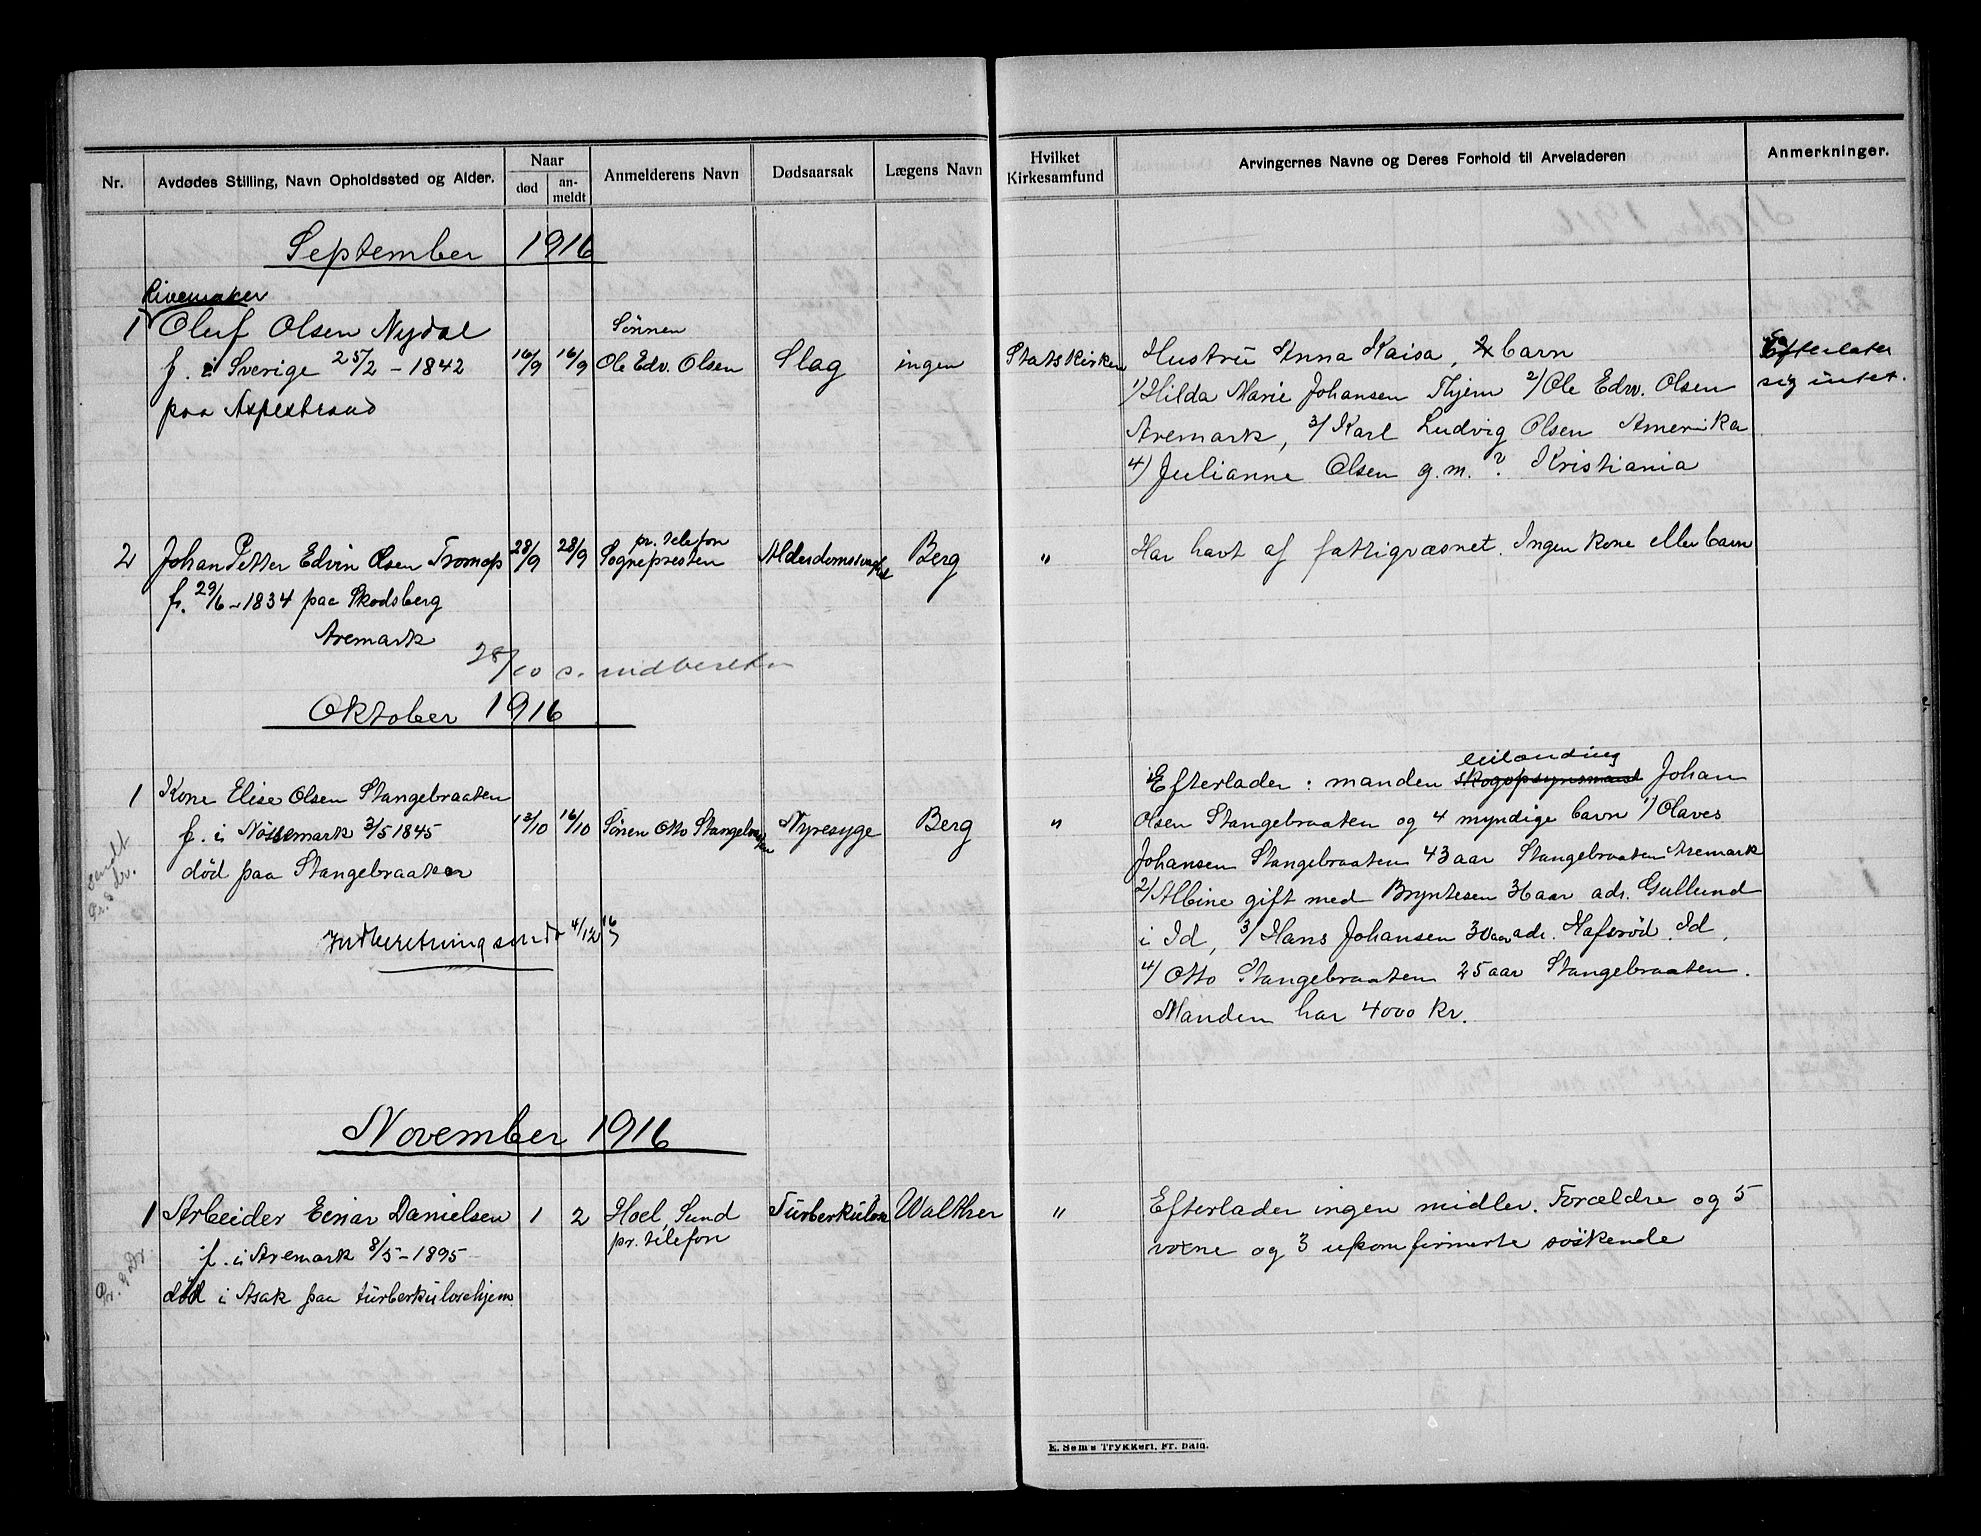 Nr.
Avdødes Stilling, Navn Opholdssted og Alder.
Naar
død
an-
meldt
Anmelderens Navn
Dødsaarsak
Lægens Navn
Hvilket
Kirkesamfund
Arvingernes Navne og Deres Forhold til Arveladeren
Anmerkninger.
September 1916
Rivemaker
1 Oluf Olsen Nydal
f. i Sverige 25/2 - 1842
paa Aspestrand
16/9 16/9
Sönnen
Ole Edv. Olsen
Slag
ingen
Statskirken
Hustru Anna Kaisa, 4 barn
1) Hilda Marie Johansen Thjem 2) Ole Edv. Olsen
Aremark, 3) Karl Ludvig Olsen Amerika
4) Julianne Olsen g. m. ? Kristiania
Efterlater
sig intet.
2 Johan Petter Edvin Olsen Tromop
f. 29/6 - 1834 paa Skodsberg
Aremark
28/9 28/9
pr. telefon
Sognepresten
Alderdomssvaghet
Berg
"
Har havt af fattigvæsnet. Ingen kone eller barn
28/10 s. indberetn
Oktober 1916
1 Kone Elise Olsen Stangebraaten
f. i Nössemark 3/5 1845
död paa Stangebraaten
sendt
Pr. 8 dv.
13/10 16/10
Sönen Otto Stangebraaten
Nyresyge
Berg
"
Efterlader: manden skogopsynsmand Johan
eilanding
Olsen Stangebraaten og 4 myndige barn 1) Olaves
Johansen Stangebraaten 43 aar Stangebraaten Aremark
2) Albine gift med Bryntesen 36 aar adr. Gullund
i Id, 3) Hans Johansen 30 aar adr. Hafsröd. Id,
4) Otto Stangebraaten 25 aar Stangebraaten.
Manden har 4000 Kr.
Indberetning sendt 4/12 16
November 1916
1 Arbeider Einar Danielsen
f. i Aremark 8/5 - 1895
död i Asak paa turberkulosehjem
1 2
Hoel, Sund
pr. telefon
Turberkulose
Walther
"
Efterlader ingen midler. Forældre og 5
voxne og 3 ukonfirmerte söskende
E. Sem's Trykkeri, Fr. hald.